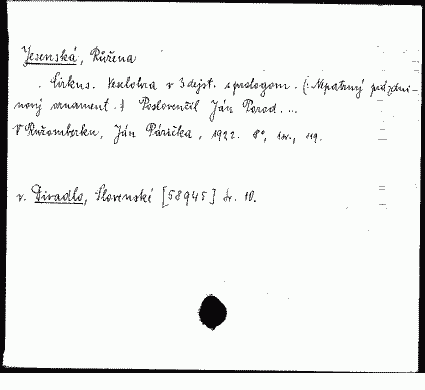 Jesenská, Růžena
. Cirkus. Veselohra v 3 dejst. s prologom. (: Nepatrný prázdni-
nový ornament. :) Poslovenčil Ján Porod. ...
V Ružomberku, Ján Párička, 1922. 8°, 1 sv., 119.
v. Divadlo, Slovenské [58945] č. 10.